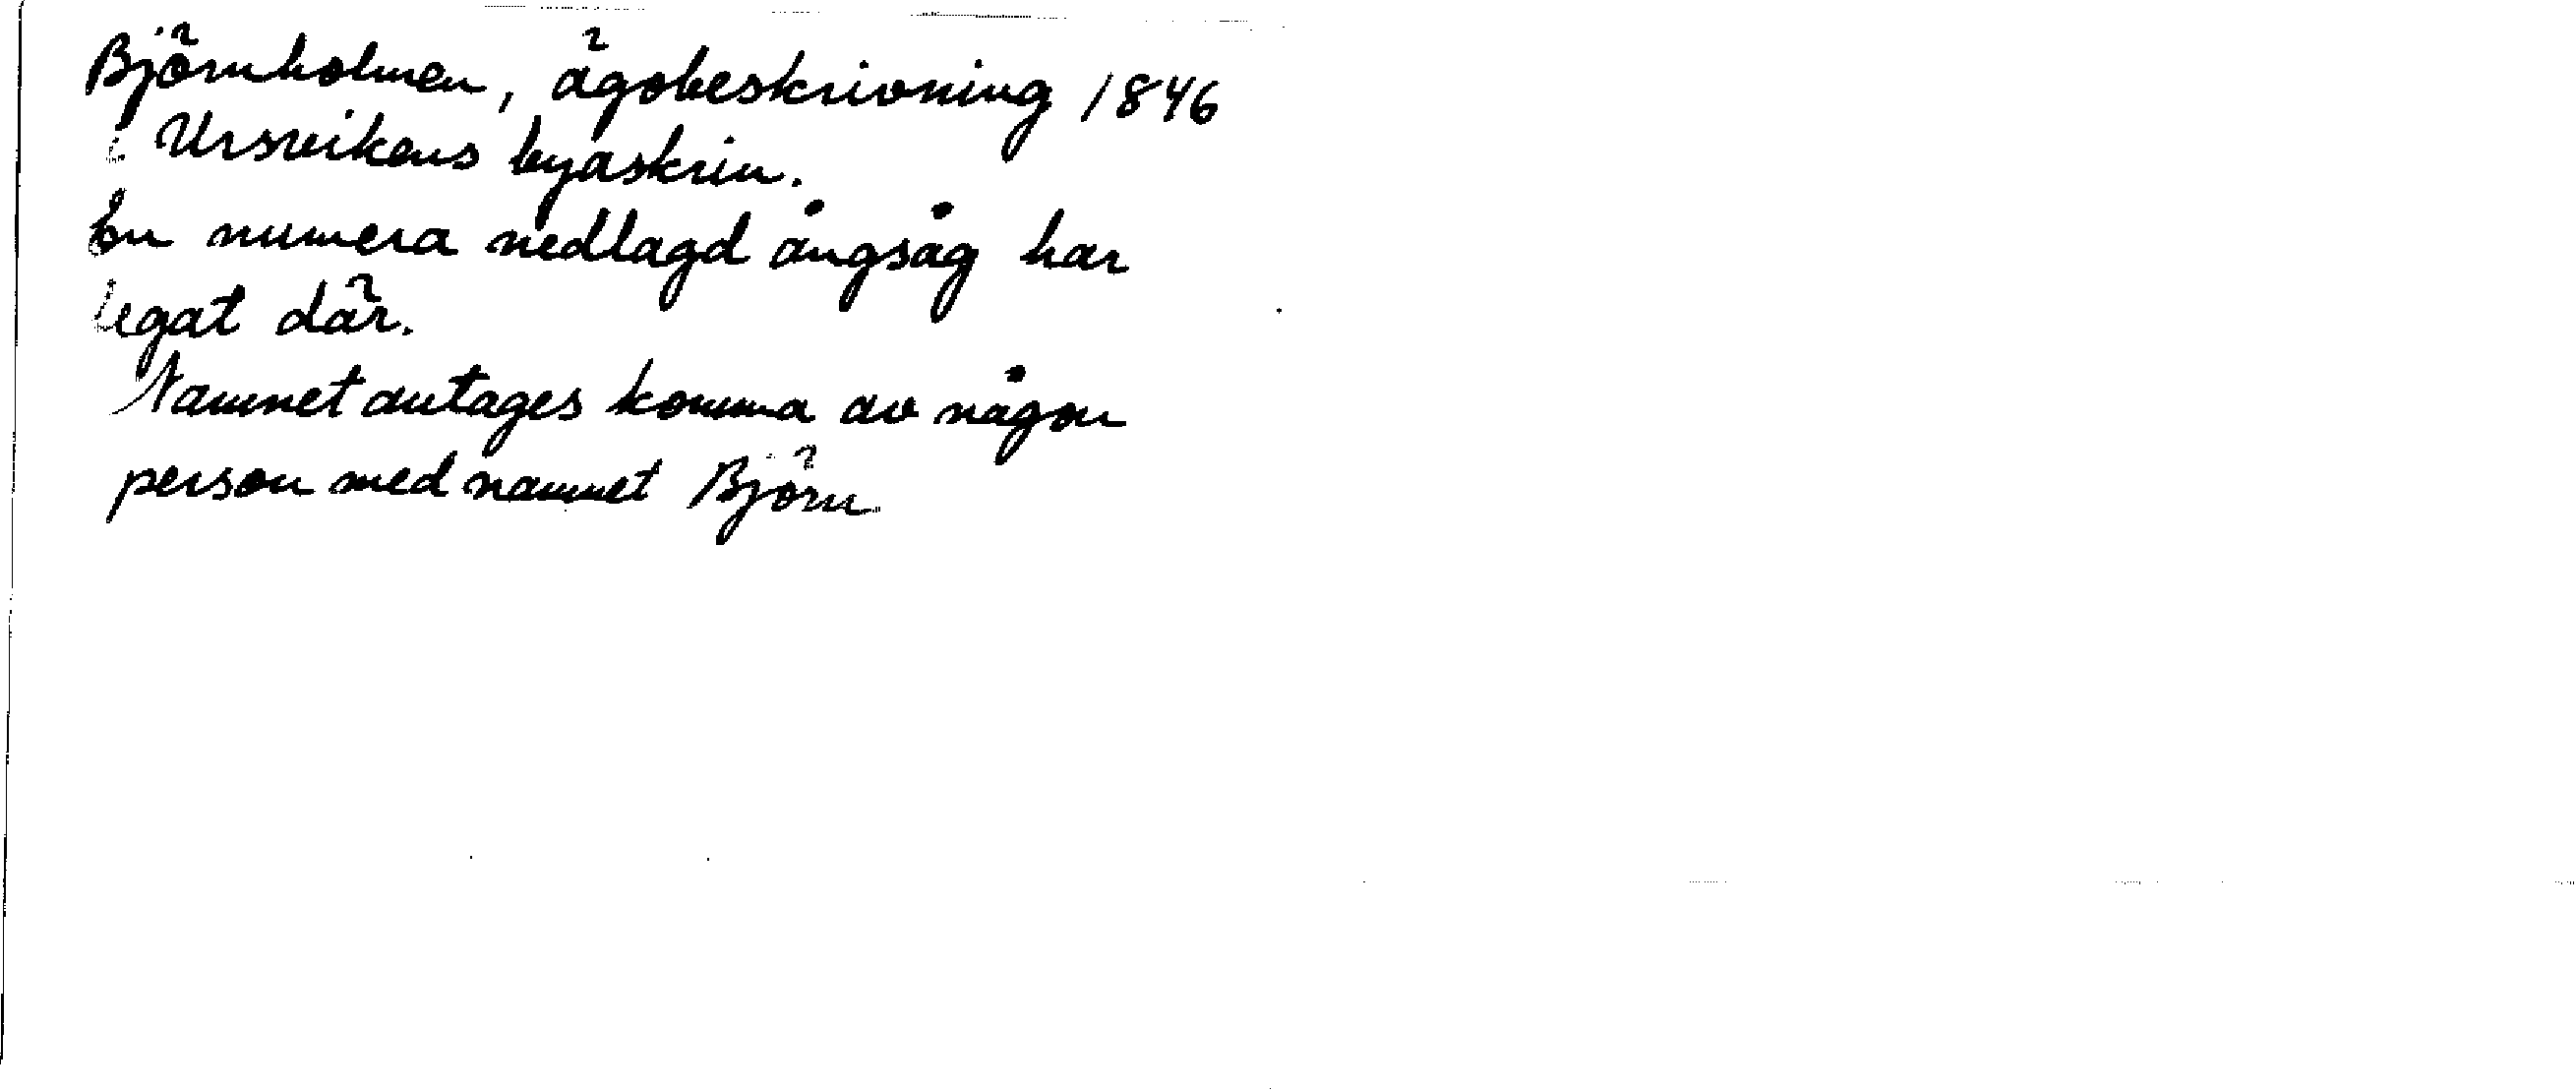 Björnholmen, ägobeskrivning 1846
i Ursvikens byaskrin.
En numera nedlagd ångsåg har
legat där.
Namnet antages komma av någon
person med namnet Björn.